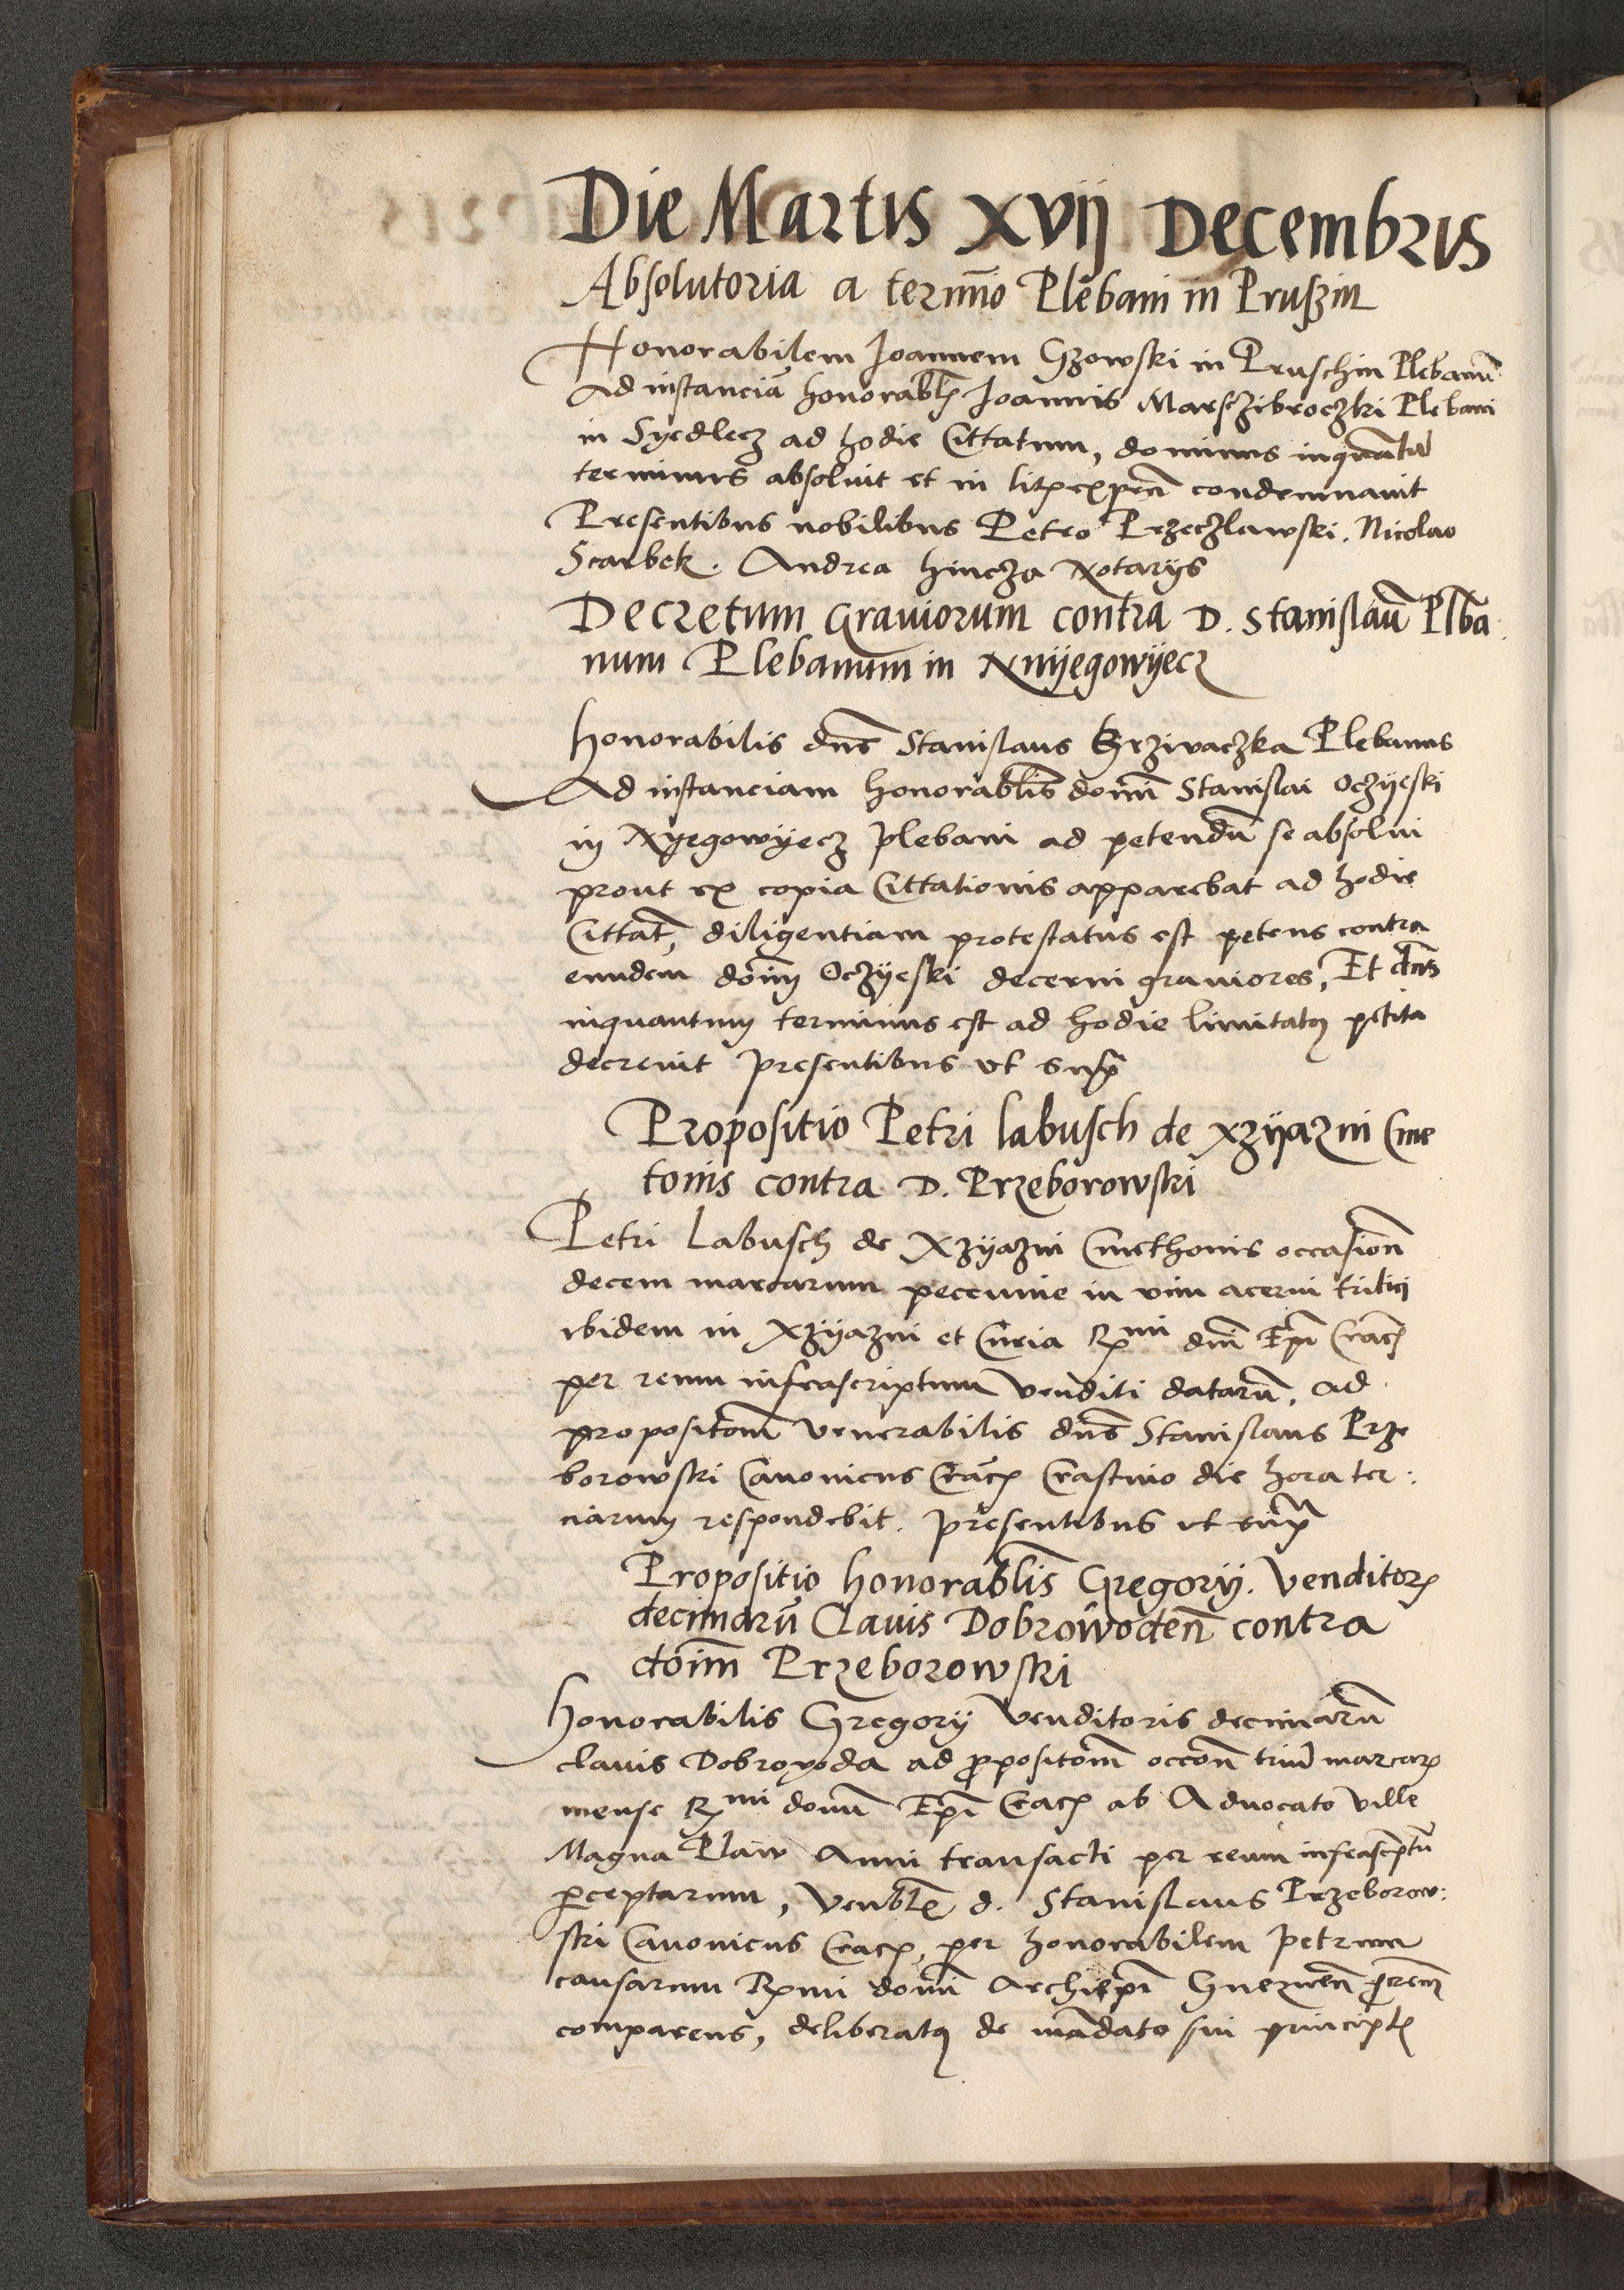 Die Martis xvij Decembris
Absolutoria a termīno Plebani in Prußin
Honorabilem Joannem Gzowski in Pruschin Plebanū
Ad instanciā honorabłꝭ Joannis Marsczibroczki Plebani
in Syedlecz ad hodie Cittatum, dominus inquantū
terminus absoluit et in litꝭ expeñ condemnauit
Presentibus nobilibus Petro Przeczlawski. Nicolao
Scarbek. Andrea hincza Notarijs
Decretum Grauiorum contra D. Stanislaū Plba
num Plebanum in Xnijegowijecz
honorabilis dn̄s Stanislaus Grziwaczka Plebanus
Ad instanciam honorablīs domī Stanislai Oczijeski
in Xyegowyecz plebani ad petendū se absolui
prout ex copia Cittationis apparebat ad hodie
Cittat̄, diligentiam protestatus est petens contra
eundem domī Oczijeski decerni grauiores, Et dn̄s
inquantum terminus est ad hodie limitatꝰ petita
decreuit presentibus vt supͣ
Propositio Petri labusch de Xzijazni Cme
tonis contra D. Przeborowski
Petri Labusch de Xzijazni Cmethonis occasioñ
decem marcarum pecunie in vim acerui tritici
ibidem in Xzijazni et Curia Rmi dnī Epī Cracꝭ
per reum infrascriptum venditi datarū, ad
propositom̄ venerabilis dn̄s Stanislaus Prze
borowski Canonicus Cracꝭ Crastino die hora ter:
ciarum respondebit. presentibus vt supͣ
Propositio honorablīs Gregorij. Venditorꝭ
decimarū Clauis Dobrowodeñ contra
doīm Przeborowski
honorabilis Gregorij Venditoris decimarū
clauis Dobrovoda ad ꝓpositom̄ occoñ triū marcarꝭ
mense Rmi domī Epī Cracꝭ ab Aduocato ville
Magna Plaw Anni transacti per reum infrascptū
perceptarum, Venbłꝭ d. Stanislaus Przeborow:
ski Canonicus Cracꝭ, per honorabilem petrum
causarum Rmi domī Archiepī Gnezneñ ꝓcrem̄
comparens, deliberatꝰ de mādato sui principłꝭ